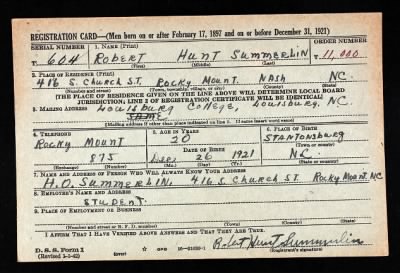 REGISTRATION CARD—(Men born on or after February 17, 1897 and on or before December 31, 1921)
SERIAL NUMBER 1. NAME (Print) ORDER NUMBER
T. 604 ROBERT HUNT SUMMERLIN T 11,000
(First) (Middle) (Last)
2. PLACE OF RESIDENCE (Print)
416 S. CHURCH ST. ROCKY MOUNT. NASH N.C.
(Number and street) (Town, township, village, or city) (County) (State)
[THE PLACE OF RESIDENCE GIVEN ON THE LINE ABOVE WILL DETERMINE LOCAL BOARD
JURISDICTION; LINE 2 OF REGISTRATION CERTIFICATE WILL BE IDENTICAL]
Louisburg College, Louisburg, N.C.
3. MAILING ADDRESS
SAME
[Mailing address if other than place indicated on line 2. If same insert word same]
4. TELEPHONE 5. AGE IN YEARS 6. PLACE OF BIRTH
ROCKY MOUNT 20 STANTONSBURG
DATE OF BIRTH (Town or county)
875 Dec. 26 1921 N.C.
(Exchange) (Number) (Mo.) (Day) (Yr.) (State or country)
7. NAME AND ADDRESS OF PERSON WHO WILL ALWAYS KNOW YOUR ADDRESS
H.O. SUMMERLIN, 416 S. CHURCH ST ROCKY MOUNT. NC
8. EMPLOYER'S NAME AND ADDRESS
STUDENT.
9. PLACE OF EMPLOYMENT OR BUSINESS
(Number and street or R. F. D. number) (Town) (County) (State)
I AFFIRM THAT I HAVE VERIFIED ABOVE ANSWERS AND THAT THEY ARE TRUE.
D. S. S. Form 1 GPO Robert Hunt Summerlin
(Revised 1-1-42) (over) (Registrant's signature)